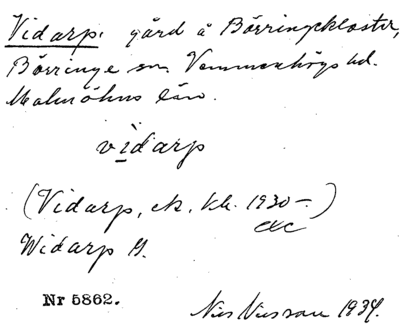 Vidarp. gård å Börringekloster,
Börringe sn. Vemmenhögs hd.
Malmöhus län.
vidarp
(Vidarp, ek. kb. 1930 – )
etc
Widarp H.
Nr 5862.
Nils Nilsson 1934.